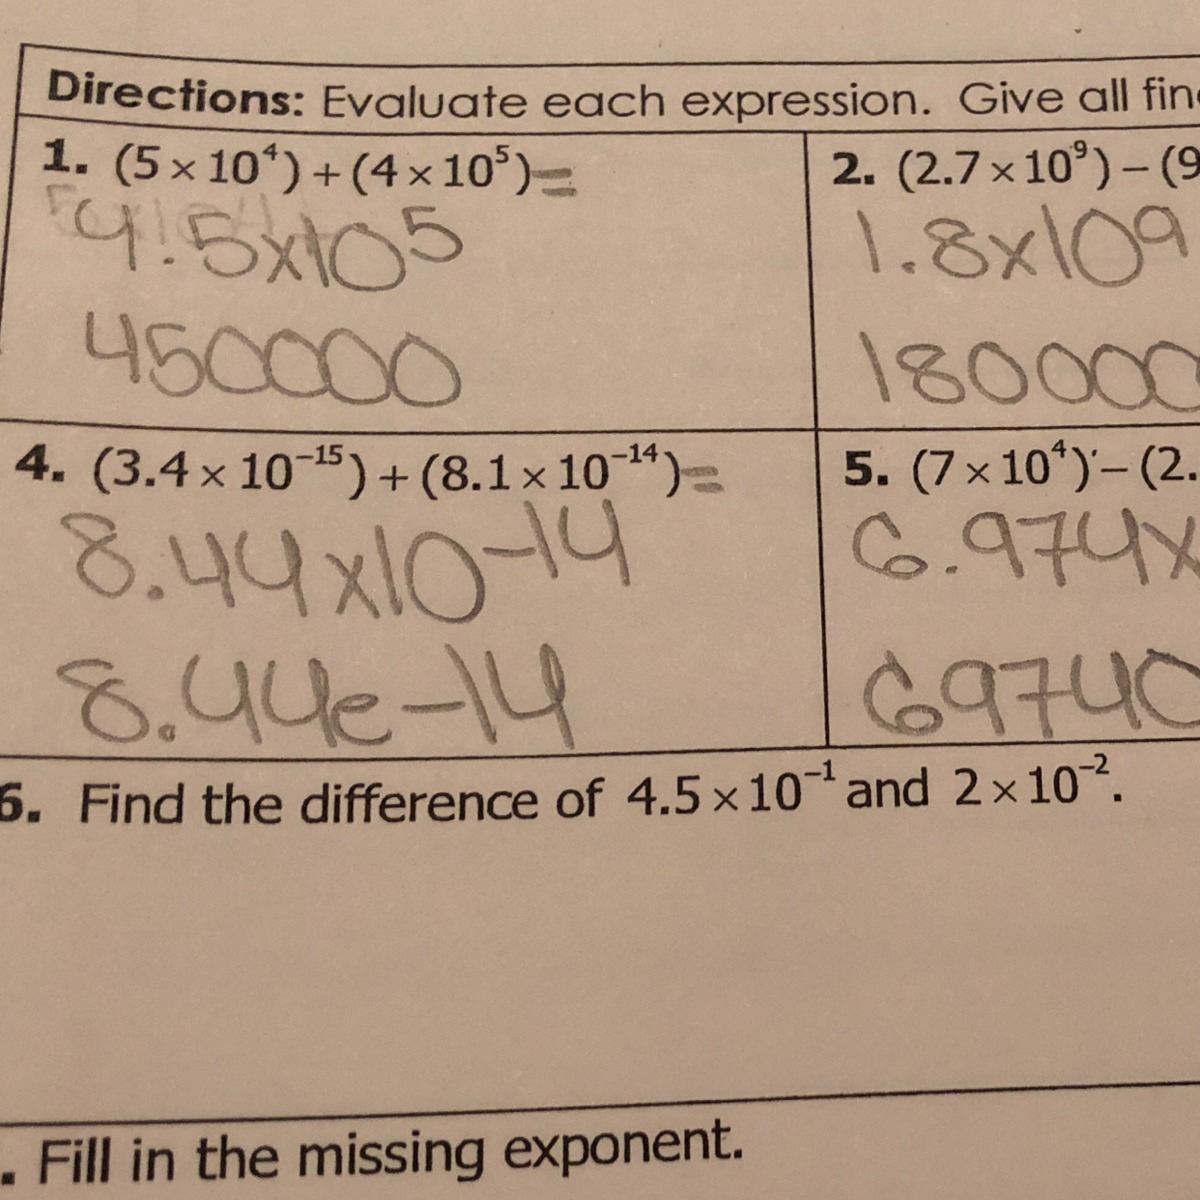 Directions: Evaluate each expression. Give all fin
1. (5 × 10⁴) + (4 × 10⁵) =
4.5x10⁵
450000
2. (2.7 × 10⁹) – (9
1.8x10⁹
180000
4. (3.4 × 10⁻¹⁵) + (8.1 × 10⁻¹⁴) =
8.44x10⁻¹⁴
8.44e-14
5. (7 × 10⁴) – (2.
6.974x
69740
6. Find the difference of 4.5 × 10⁻¹ and 2 × 10⁻².
. Fill in the missing exponent.